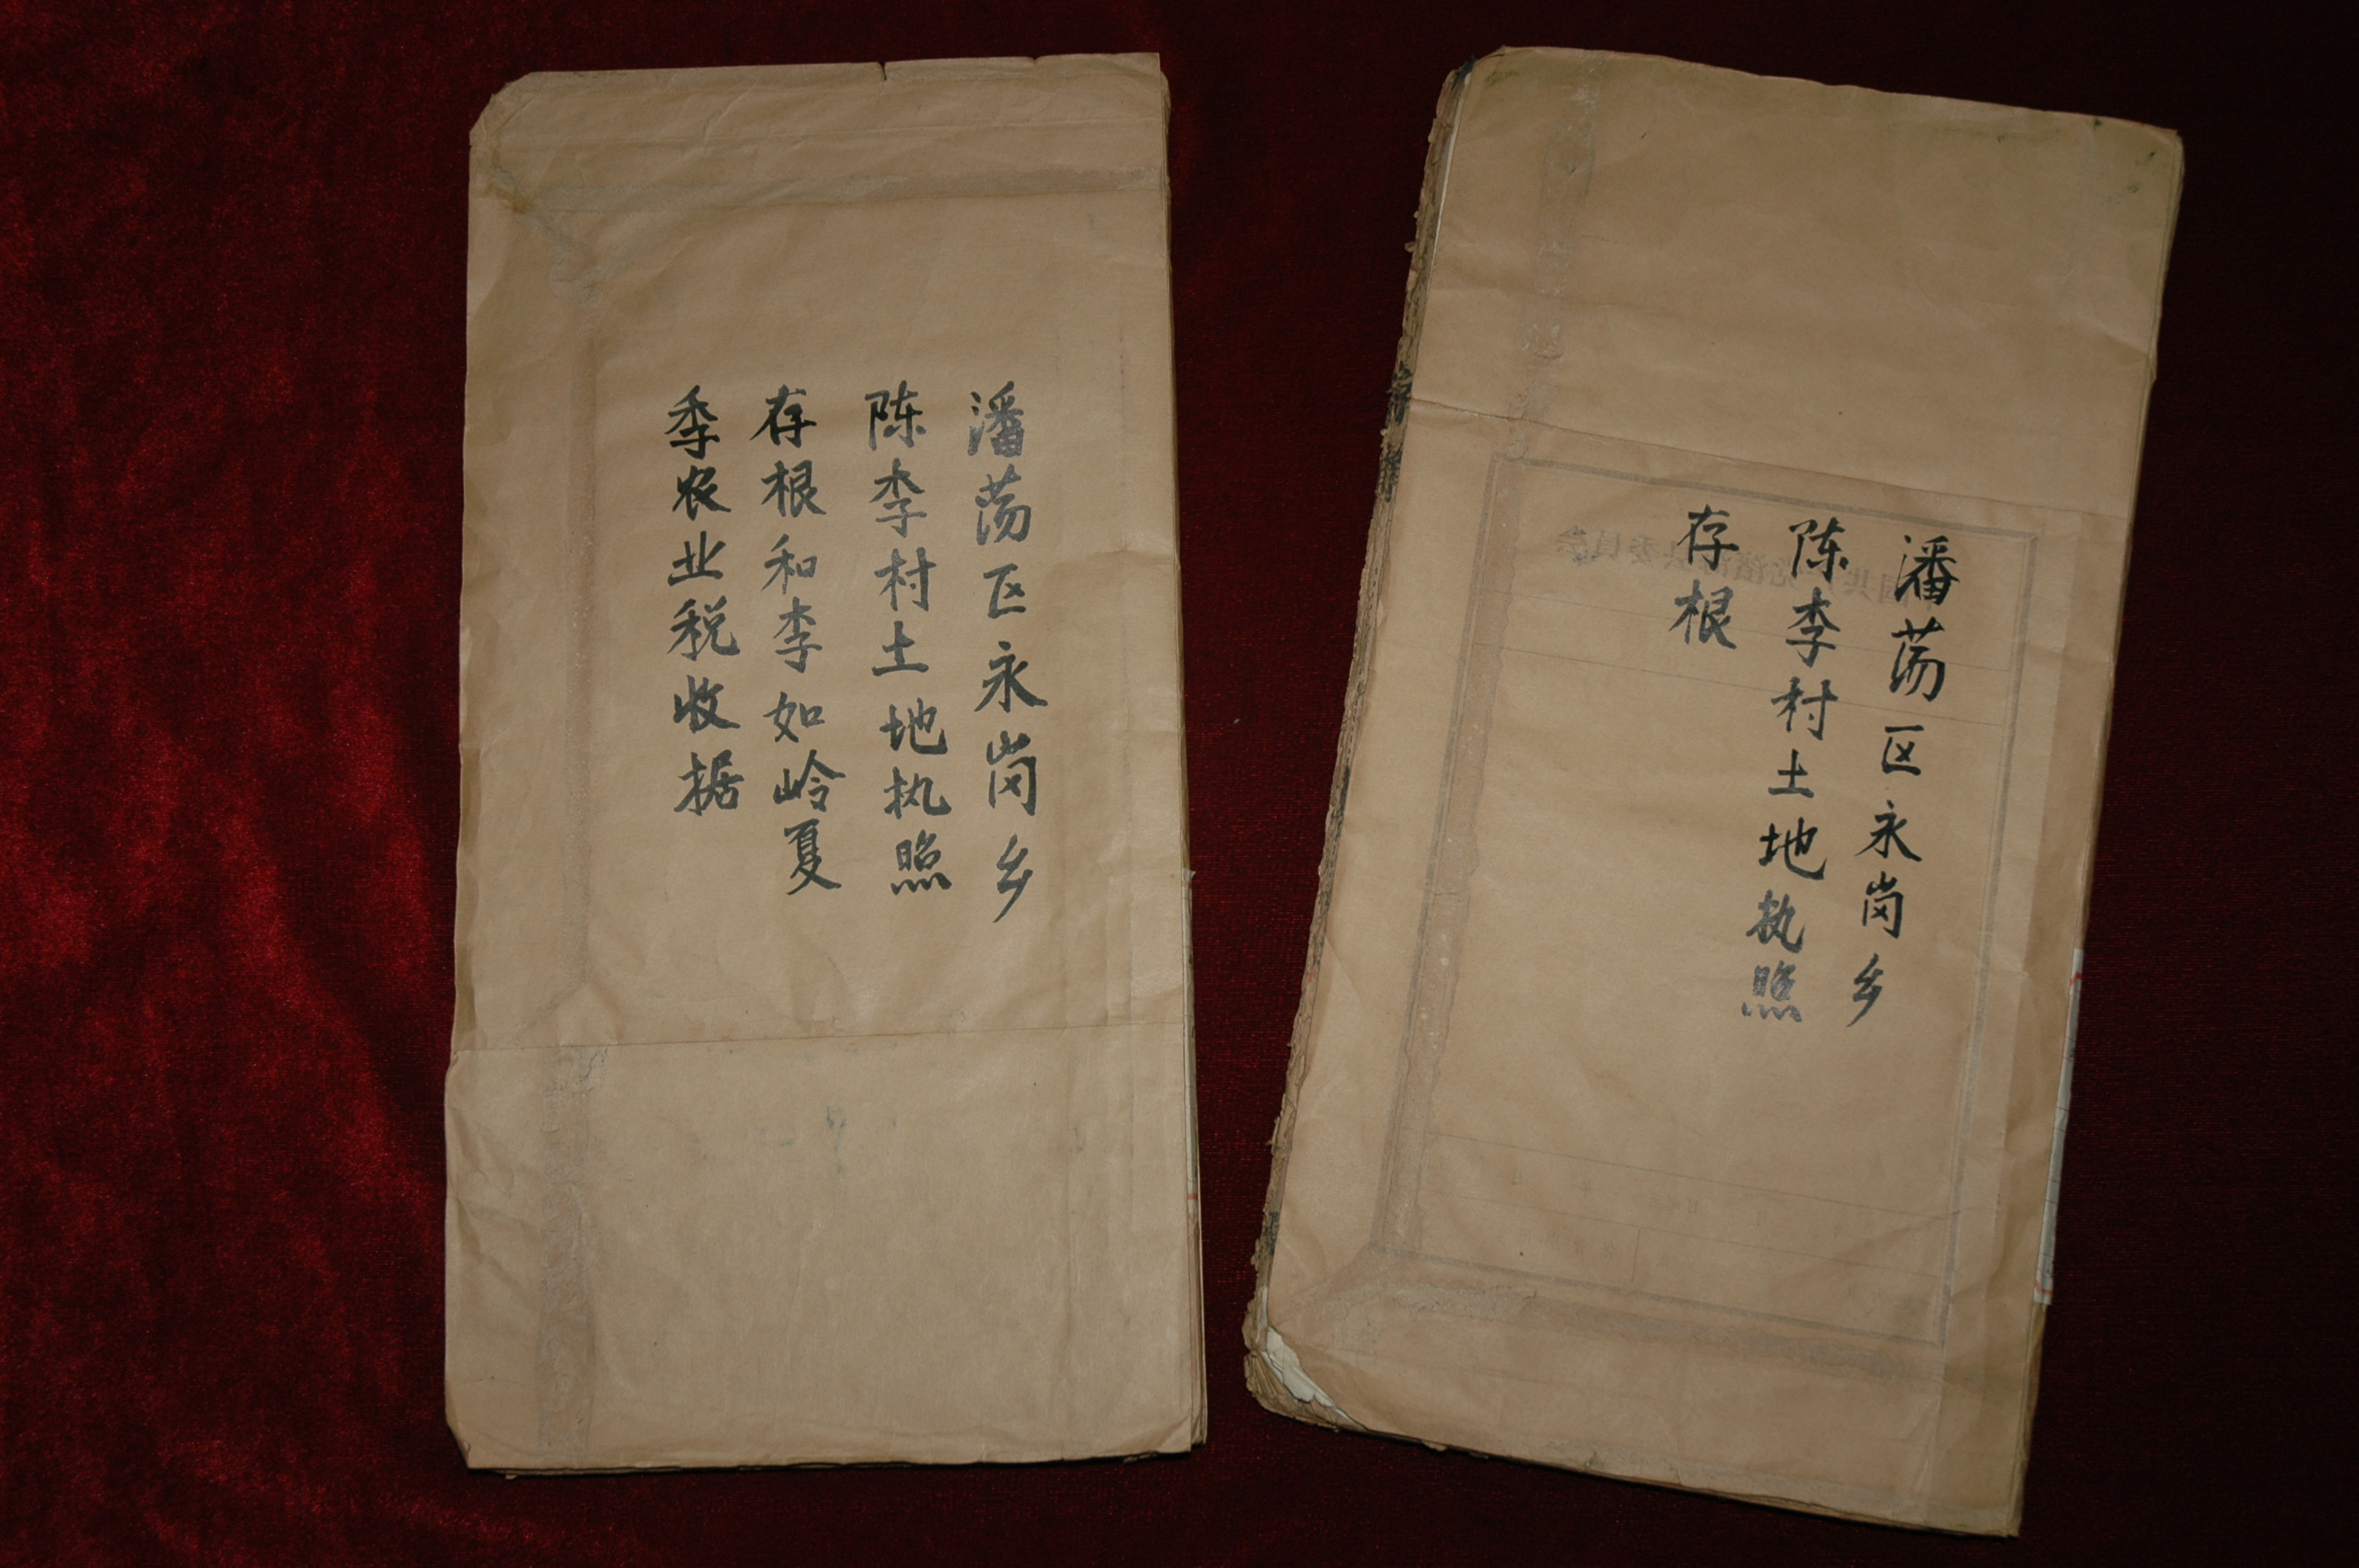 潘荡区永岗乡
陈李村土地执照
存根和李如岭夏
季农业税收据
潘荡区永岗乡
陈李村土地执照
存根